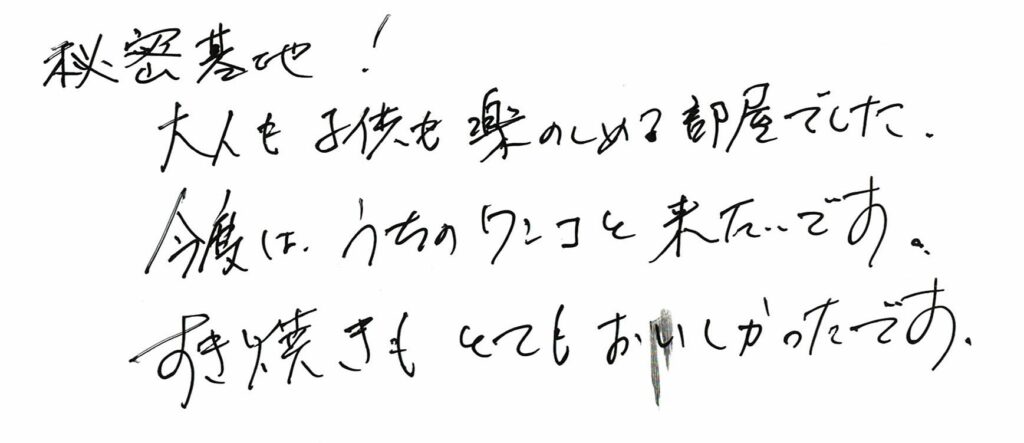 秘密基地!
大人も子供も楽のしめる部屋でした.
今度は、うちのワンコと来たいです。
すき焼きもとてもおいしかったです.